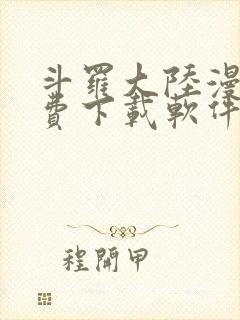 斗羅大陸漫
費下載軟件
程開甲